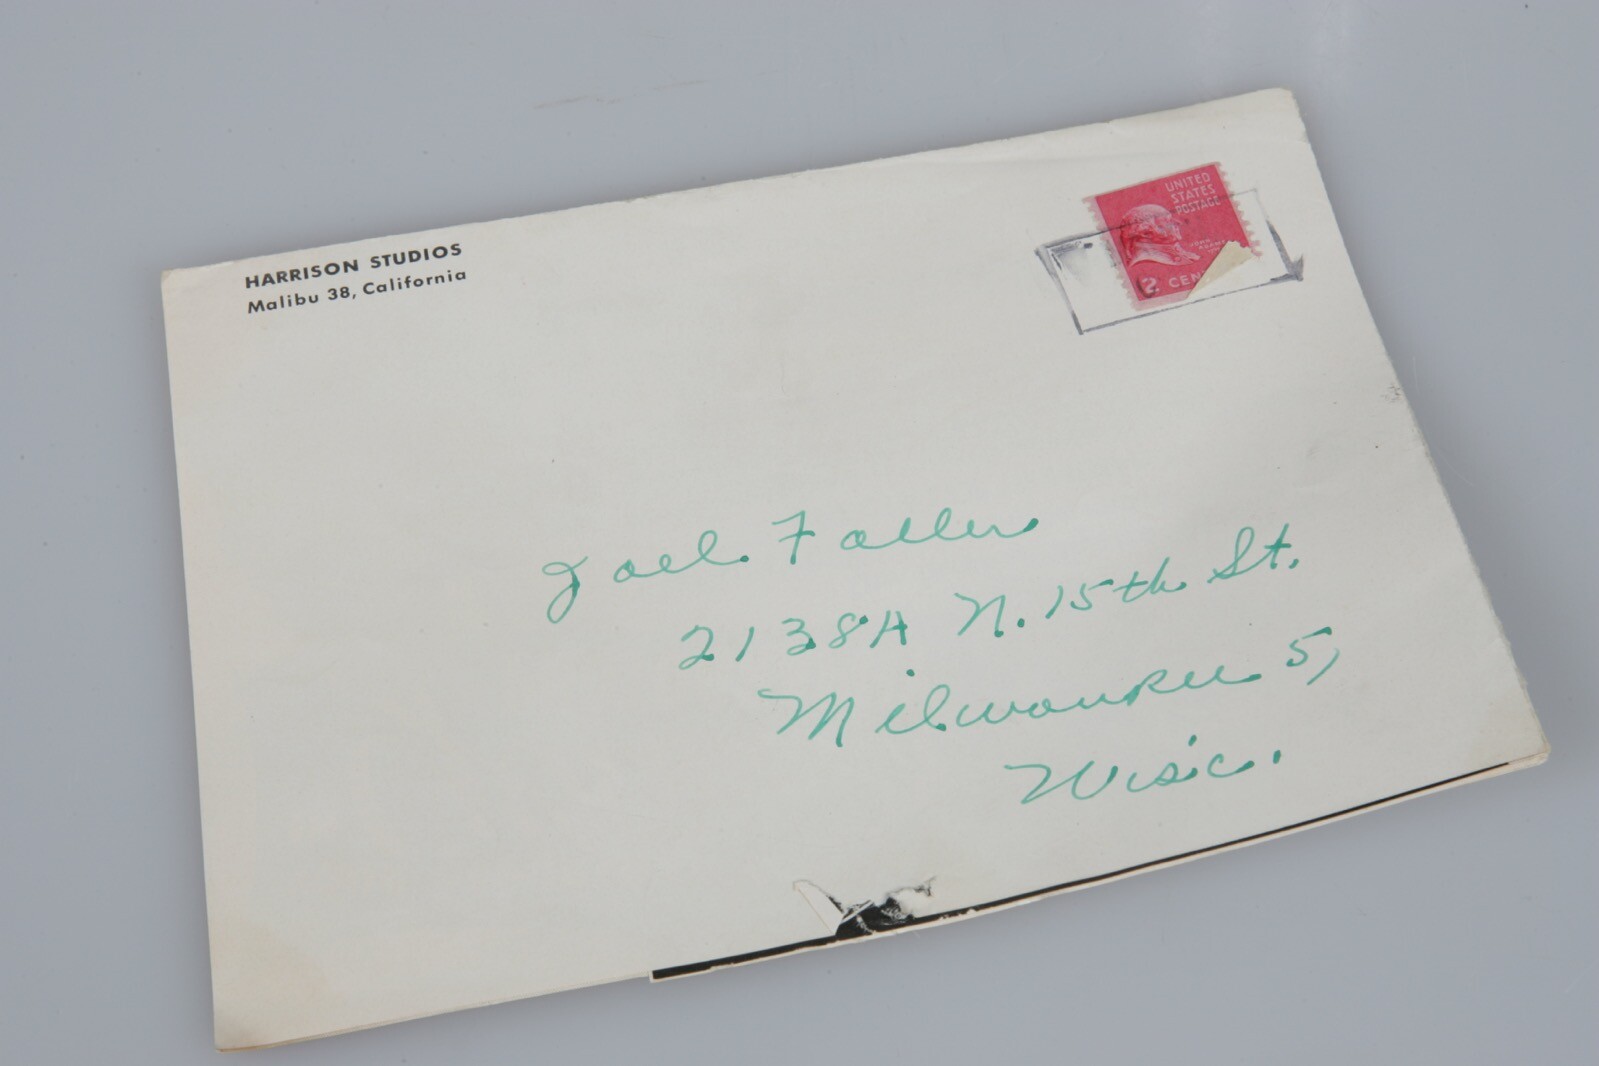 HARRISON STUDIOS
Malibu 38, California
UNITED
STATES
POSTAGE
JOHN
ADAMS
2 CEN
Joel Faller
2138A N. 15th St.
Milwaukee 5,
Wisc.